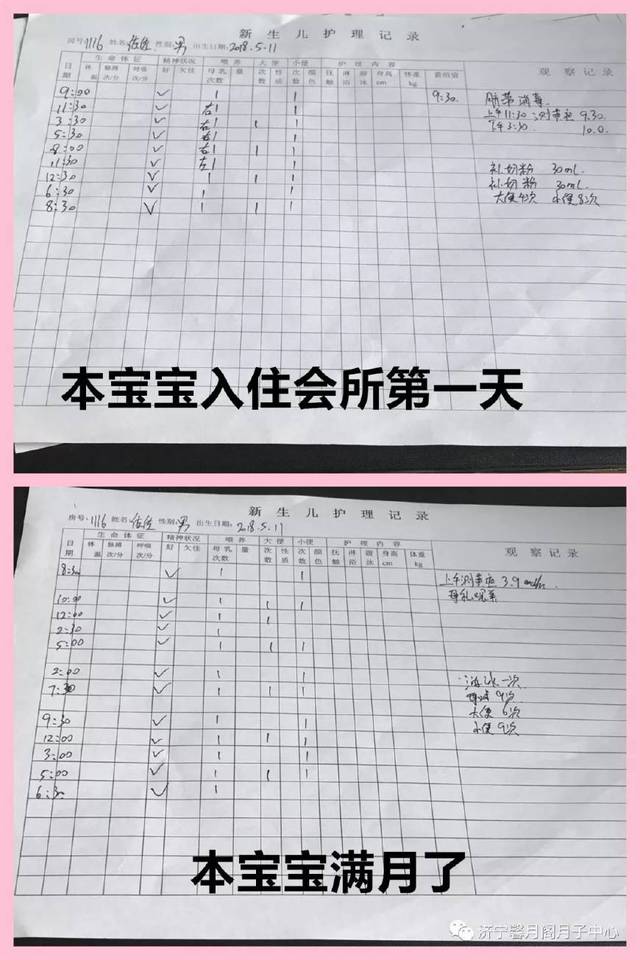 新生儿护理记录
房号:1116 姓名:佐佐 性别:男 出生日期:2018.5.11
生命体证 精神状况 喂养 大便 小便 护理内容
日期 体温 脉搏次/分 呼吸次/分 好 欠佳 母乳次数 量 次数 性质 次数 颜色 抚触 淋浴 游泳 身高cm 体重kg 黄疸值 观察记录
9:00 ✓ 1 1 9:30 脐带消毒
11:30 ✓ 右1 1 上午11:30 测黄疸 9.30
3:30 ✓ 右1 1 1 下午3:30 10.0
5:30 ✓ 右1 1
8:00 ✓ 右1 1 1
11:30 ✓ 左1 1 补奶粉 30ml.
12:30 ✓ 1 1 1 补奶粉 30ml.
6:30 ✓ 1 1 大便4次 小便8次
8:30 ✓ 1 1 1
本宝宝入住会所第一天
新生儿护理记录
房号:1116 姓名:佐佐 性别:男 出生日期:2018.5.11
生命体证 精神状况 喂养 大便 小便 护理内容
日期 体温 脉搏次/分 呼吸次/分 好 欠佳 母乳次数 量 次数 性质 次数 颜色 抚触 淋浴 游泳 身高cm 体重kg 观察记录
8:30 ✓ 1 1 上午测黄疸 3.9
10:00 ✓ 1 1 1
12:00 ✓ 1 1
2:30 ✓ 1
5:00 ✓ 1 1 1
2:00 ✓ 1 1 游泳一次
7:30 ✓ 1 1 1 9次
大便6次
9:30 ✓ 1 1 小便9次
12:00 ✓ 1 1 1
3:00 ✓ 1 1
5:00 ✓ 1 1 1
6:30 ✓ 1
本宝宝满月了
济宁馨月阁月子中心